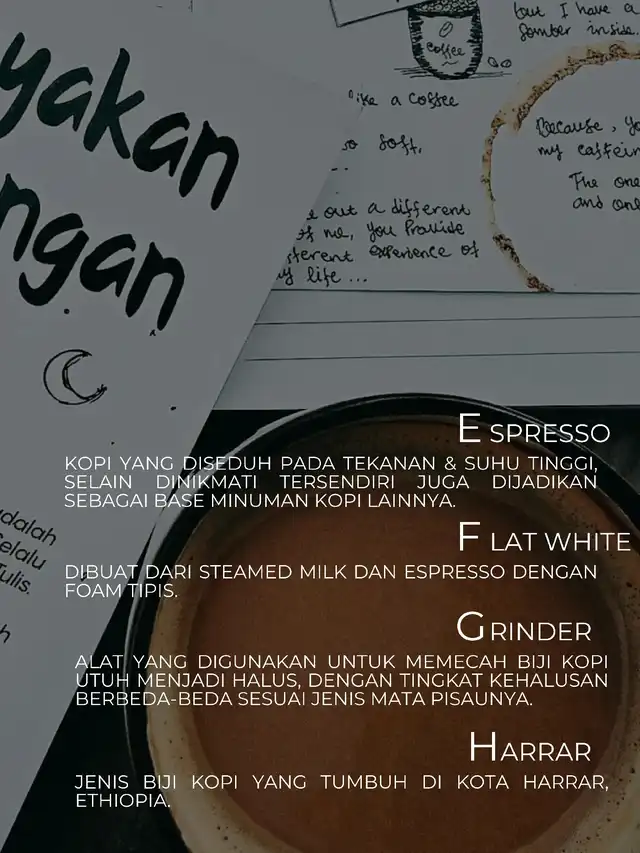 yakan
ngan
adalah
Selalu
Tulis.
h
coffee
but I have a
somber inside.
like a coffee
so soft,
...
out a different
of me, you Provide
different experience of
my life ...
Because, yo
my caffein
The one
and one
E SPRESSO
KOPI YANG DISEDUH PADA TEKANAN & SUHU TINGGI,
SELAIN DINIKMATI TERSENDIRI JUGA DIJADIKAN
SEBAGAI BASE MINUMAN KOPI LAINNYA.
F LAT WHITE
DIBUAT DARI STEAMED MILK DAN ESPRESSO DENGAN
FOAM TIPIS.
GRINDER
ALAT YANG DIGUNAKAN UNTUK MEMECAH BIJI KOPI
UTUH MENJADI HALUS, DENGAN TINGKAT KEHALUSAN
BERBEDA-BEDA SESUAI JENIS MATA PISAUNYA.
HARRAR
JENIS BIJI KOPI YANG TUMBUH DI KOTA HARRAR,
ETHIOPIA.